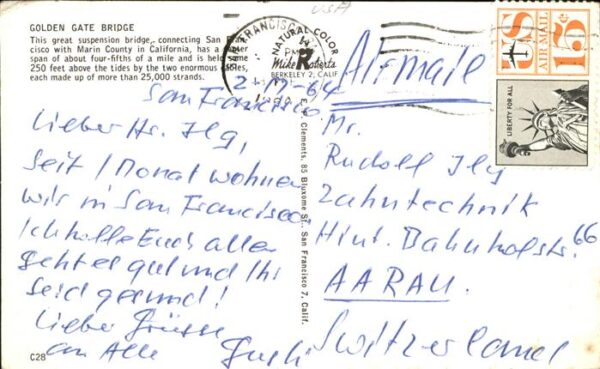 GOLDEN GATE BRIDGE
This great suspension bridge, connecting San Fran-
cisco with Marin County in California, has a center
span of about four-fifths of a mile and is held some
250 feet above the tides by the two enormous cables,
each made up of more than 25,000 strands.
San Francisco 2-17-64
Lieber Hr. Ilg,
seit 1 Monat wohnen
wir in San Francisco.
Ich hoffe Euch allen
geht es gut und Ihr
seid gesund!
Liebe Grüsse
an Alle
C28
USA
SAN FRANCISCO
PM
NATURAL COLOR
Mike Roberts
BERKELEY 2, CALIF.
E. F. Clements, 85 Bluxome St., San Francisco 7, Calif.
Airmail
US AIR MAIL 15¢
LIBERTY FOR ALL
Mr.
Rudolf Ilg
Zahntechnik
Hint. Bahnhofstr. 66
AARAU
Switzerland